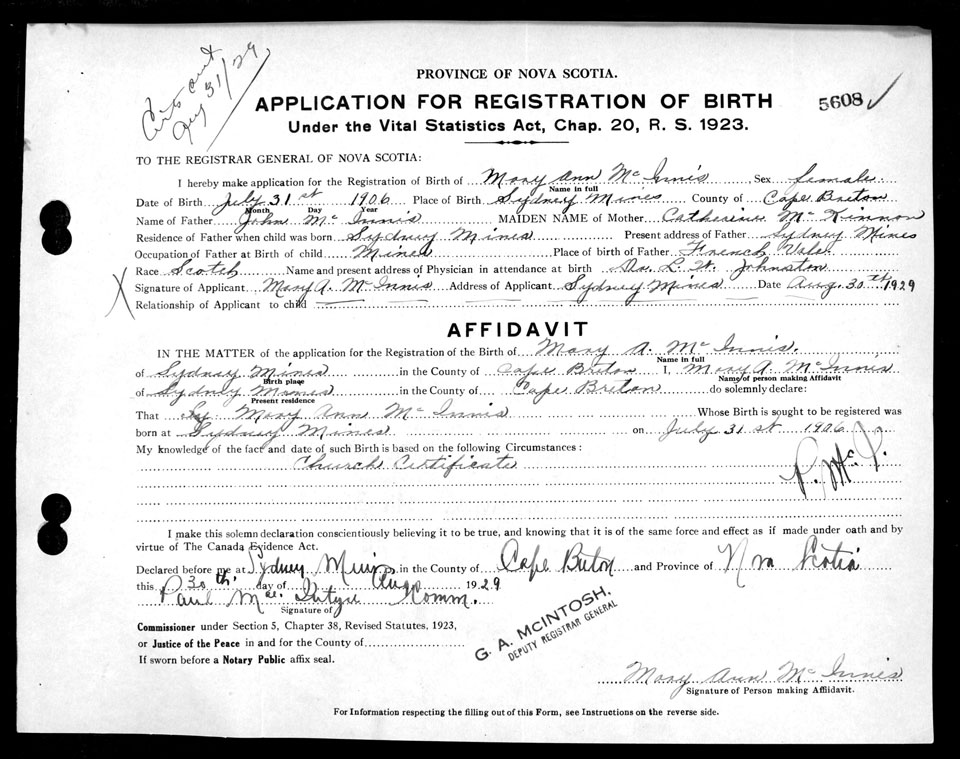 Certs out
Aug 31/29
PROVINCE OF NOVA SCOTIA.
APPLICATION FOR REGISTRATION OF BIRTH
5608 ✓
Under the Vital Statistics Act, Chap. 20, R. S. 1923.
TO THE REGISTRAR GENERAL OF NOVA SCOTIA:
I hereby make application for the Registration of Birth of Mary Ann Mc Innis Sex female
Name in full
Date of Birth July 31st 1906 Place of Birth Sydney Mines County of Cape Breton
Month Day Year
Name of Father John Mc Innis MAIDEN NAME of Mother Catherine Mc Kinnon
Residence of Father when child was born Sydney Mines Present address of Father Sydney Mines
Occupation of Father at Birth of child Miner Place of birth of Father French Vale
Race Scotch Name and present address of Physician in attendance at birth Dr. L. W. Johnston
X Signature of Applicant Mary A. Mc Innis Address of Applicant Sydney Mines Date Aug. 30th 1929
Relationship of Applicant to child
AFFIDAVIT
IN THE MATTER of the application for the Registration of the Birth of Mary A. Mc Innis.
Name in full
of Sydney Mines in the County of Cape Breton I, Mary A. Mc Innis
Birth place Name of person making Affidavit
of Sydney Mines in the County of Cape Breton do solemnly declare:
Present residence
That Mary Ann Mc Innis Whose Birth is sought to be registered was
born at Sydney Mines on July 31st 1906
My knowledge of the fact and date of such Birth is based on the following Circumstances:
Church Certificate
P. Mc I.
I make this solemn declaration conscientiously believing it to be true, and knowing that it is of the same force and effect as if made under oath and by
virtue of The Canada Evidence Act.
Declared before me at Sydney Mines in the County of Cape Breton and Province of Nova Scotia
this 30th. day of Aug 1929
Paul Mac Intyre Komm.
Signature of
Commissioner under Section 5, Chapter 38, Revised Statutes, 1923,
or Justice of the Peace in and for the County of
If sworn before a Notary Public affix seal.
G. A. MCINTOSH.
DEPUTY REGISTRAR GENERAL
Mary Ann Mc Innis
Signature of Person making Affidavit.
For Information respecting the filling out of this Form, see Instructions on the reverse side.